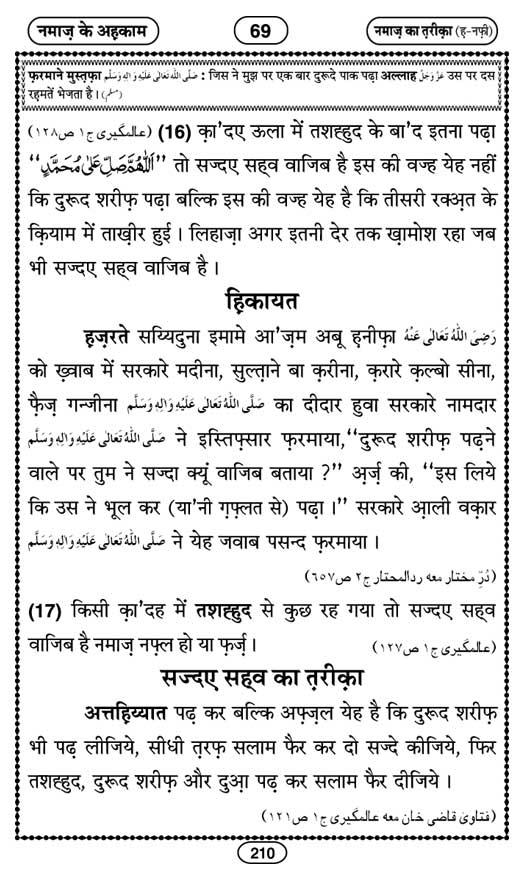 नमाज़ के अह़काम
69
नमाज़ का त़रीक़ा (ह़-नफ़ी)
फ़रमाने मुस्त़फ़ा صَلَّى اللهُ تَعَالٰى عَلَيْهِ وَاٰلِهٖ وَسَلَّم : जिस ने मुझ पर एक बार दुरूदे पाक पढ़ा अल्लाह عَزَّوَجَلَّ उस पर दस
रह़मतें भेजता है। (مسلم)
(16) क़ा'दए ऊला में तशह्हुद के बा'द इतना पढ़ा (عالمگیری ج۱ ص۱۲۸)
‘‘اَللّٰهُمَّ صَلِّ عَلٰى مُحَمَّدٍ’’ तो सज्दए सह्व वाजिब है इस की वज्ह येह नहीं
कि दुरूद शरीफ़ पढ़ा बल्कि इस की वज्ह येह है कि तीसरी रक्अ़त के
क़ियाम में ताख़ीर हुई। लिहाज़ा अगर इतनी देर तक ख़ामोश रहा जब
भी सज्दए सह्व वाजिब है।
ह़िकायत
ह़ज़रते सय्यिदुना इमामे आ'ज़म अबू ह़नीफ़ा رَضِىَ اللّٰهُ تَعَالٰى عَنْهُ
को ख़्वाब में सरकारे मदीना, सुल्त़ाने बा क़रीना, क़रारे क़ल्बो सीना,
फ़ैज़ गन्जीना صَلَّى اللّٰهُ تَعَالٰى عَلَيْهِ وَاٰلِهٖ وَسَلَّم का दीदार हुवा सरकारे नामदार
صَلَّى اللّٰهُ تَعَالٰى عَلَيْهِ وَاٰلِهٖ وَسَلَّم ने इस्तिफ़्सार फ़रमाया,‘‘दुरूद शरीफ़ पढ़ने
वाले पर तुम ने सज्दा क्यूं वाजिब बताया ?’’ अ़र्ज़ की, ‘‘इस लिये
कि उस ने भूल कर (या'नी ग़फ़्लत से) पढ़ा।’’ सरकारे आ़ली वक़ार
صَلَّى اللّٰهُ تَعَالٰى عَلَيْهِ وَاٰلِهٖ وَسَلَّم ने येह जवाब पसन्द फ़रमाया।
(دُرِّ مختار معه ردالمحتار ج۲ ص۶۵۷)
(17) किसी क़ा'दह में तशह्हुद से कुछ रह गया तो सज्दए सह्व
वाजिब है नमाज़ नफ़्ल हो या फ़र्ज़। (عالمگیری ج۱ ص۱۲۷)
सज्दए सह्व का त़रीक़ा
अत्तह़िय्यात पढ़ कर बल्कि अफ़्ज़ल येह है कि दुरूद शरीफ़
भी पढ़ लीजिये, सीधी त़रफ़ सलाम फैर कर दो सज्दे कीजिये, फिर
तशह्हुद, दुरूद शरीफ़ और दुआ़ पढ़ कर सलाम फैर दीजिये।
(فتاویٰ قاضی خان معه عالمگیری ج۱ ص۱۲۱)
210